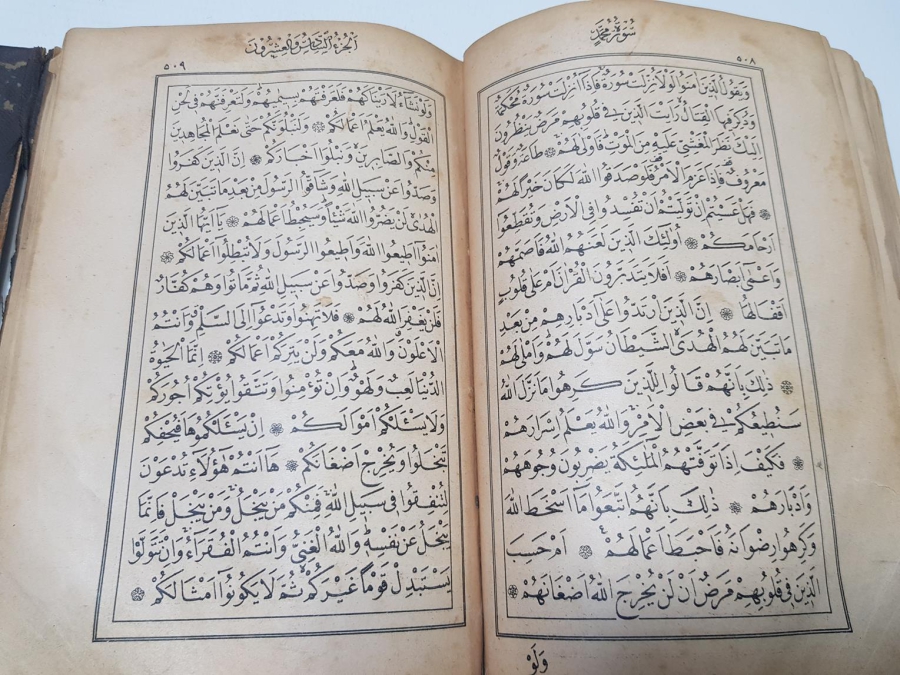 سُورَةُ مُحَمَّدٍ
٥٠٨
وَيَقُولُ الَّذِينَ اٰمَنُوا لَوْلَا نُزِّلَتْ سُورَةٌ فَاِذَا اُنْزِلَتْ سُورَةٌ مُحْكَمَةٌ
وَذُكِرَ فِيهَا الْقِتَالُ رَاَيْتَ الَّذِينَ فِي قُلُوبِهِمْ مَرَضٌ يَنْظُرُونَ
اِلَيْكَ نَظَرَ الْمَغْشِيِّ عَلَيْهِ مِنَ الْمَوْتِ فَاَوْلٰى لَهُمْ ❁ طَاعَةٌ وَقَوْلٌ
مَعْرُوفٌ فَاِذَا عَزَمَ الْاَمْرُ فَلَوْ صَدَقُوا اللّٰهَ لَكَانَ خَيْرًا لَهُمْ
❁ فَهَلْ عَسَيْتُمْ اِنْ تَوَلَّيْتُمْ اَنْ تُفْسِدُوا فِي الْاَرْضِ وَتُقَطِّعُوا
اَرْحَامَكُمْ ❁ اُولٰئِكَ الَّذِينَ لَعَنَهُمُ اللّٰهُ فَاَصَمَّهُمْ
وَاَعْمٰى اَبْصَارَهُمْ ❁ اَفَلَا يَتَدَبَّرُونَ الْقُرْاٰنَ اَمْ عَلٰى قُلُوبٍ
اَقْفَالُهَا ❁ اِنَّ الَّذِينَ ارْتَدُّوا عَلٰى اَدْبَارِهِمْ مِنْ بَعْدِ
مَا تَبَيَّنَ لَهُمُ الْهُدَى الشَّيْطَانُ سَوَّلَ لَهُمْ وَاَمْلٰى لَهُمْ
❁ ذٰلِكَ بِاَنَّهُمْ قَالُوا لِلَّذِينَ كَرِهُوا مَا نَزَّلَ اللّٰهُ
سَنُطِيعُكُمْ فِي بَعْضِ الْاَمْرِ وَاللّٰهُ يَعْلَمُ اِسْرَارَهُمْ
❁ فَكَيْفَ اِذَا تَوَفَّتْهُمُ الْمَلٰئِكَةُ يَضْرِبُونَ وُجُوهَهُمْ
وَاَدْبَارَهُمْ ❁ ذٰلِكَ بِاَنَّهُمُ اتَّبَعُوا مَا اَسْخَطَ اللّٰهَ
وَكَرِهُوا رِضْوَانَهُ فَاَحْبَطَ اَعْمَالَهُمْ ❁ اَمْ حَسِبَ
الَّذِينَ فِي قُلُوبِهِمْ مَرَضٌ اَنْ لَنْ يُخْرِجَ اللّٰهُ اَضْغَانَهُمْ ❁
وَلَوْ
اَلْجُزْءُ السَّادِسُ وَالْعِشْرُونَ
٥٠٩
وَلَوْ نَشَاءُ لَاَرَيْنَاكَهُمْ فَلَعَرَفْتَهُمْ بِسِيمٰيهُمْ وَلَتَعْرِفَنَّهُمْ فِي لَحْنِ
الْقَوْلِ وَاللّٰهُ يَعْلَمُ اَعْمَالَكُمْ ❁ وَلَنَبْلُوَنَّكُمْ حَتّٰى نَعْلَمَ الْمُجَاهِدِينَ
مِنْكُمْ وَالصَّابِرِينَ وَنَبْلُوَا اَخْبَارَكُمْ ❁ اِنَّ الَّذِينَ كَفَرُوا
وَصَدُّوا عَنْ سَبِيلِ اللّٰهِ وَشَاقُّوا الرَّسُولَ مِنْ بَعْدِ مَا تَبَيَّنَ لَهُمُ
الْهُدٰى لَنْ يَضُرُّوا اللّٰهَ شَيْئًا وَسَيُحْبِطُ اَعْمَالَهُمْ ❁ يَا اَيُّهَا الَّذِينَ
اٰمَنُوا اَطِيعُوا اللّٰهَ وَاَطِيعُوا الرَّسُولَ وَلَا تُبْطِلُوا اَعْمَالَكُمْ ❁
اِنَّ الَّذِينَ كَفَرُوا وَصَدُّوا عَنْ سَبِيلِ اللّٰهِ ثُمَّ مَاتُوا وَهُمْ كُفَّارٌ
فَلَنْ يَغْفِرَ اللّٰهُ لَهُمْ ❁ فَلَا تَهِنُوا وَتَدْعُوا اِلَى السَّلْمِ وَاَنْتُمُ
الْاَعْلَوْنَ وَاللّٰهُ مَعَكُمْ وَلَنْ يَتِرَكُمْ اَعْمَالَكُمْ ❁ اِنَّمَا الْحَيٰوةُ
الدُّنْيَا لَعِبٌ وَلَهْوٌ وَاِنْ تُؤْمِنُوا وَتَتَّقُوا يُؤْتِكُمْ اُجُورَكُمْ
وَلَا يَسْئَلْكُمْ اَمْوَالَكُمْ ❁ اِنْ يَسْئَلْكُمُوهَا فَيُحْفِكُمْ
تَبْخَلُوا وَيُخْرِجْ اَضْغَانَكُمْ ❁ هَا اَنْتُمْ هٰؤُلَاءِ تُدْعَوْنَ
لِتُنْفِقُوا فِي سَبِيلِ اللّٰهِ فَمِنْكُمْ مَنْ يَبْخَلُ وَمَنْ يَبْخَلْ فَاِنَّمَا
يَبْخَلُ عَنْ نَفْسِهِ وَاللّٰهُ الْغَنِيُّ وَاَنْتُمُ الْفُقَرَاءُ وَاِنْ تَتَوَلَّوْا
يَسْتَبْدِلْ قَوْمًا غَيْرَكُمْ ثُمَّ لَا يَكُونُوا اَمْثَالَكُمْ ❁